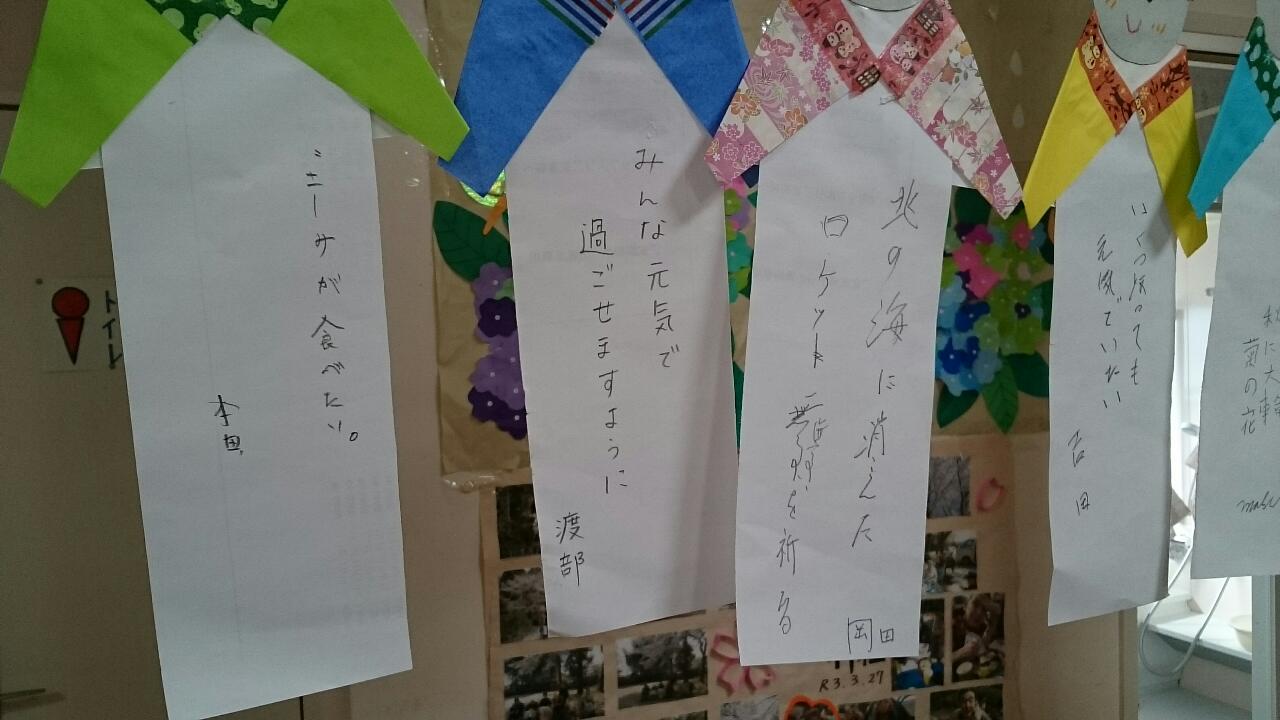 トイレ
が食べたい。
本田
みんな元気で
過ごせますように
渡部
北の海に消えた
ロケット
を祈る
岡田
いくつ
元気でいたい
吉田
秋に大輪
菊の花
R3.3.27